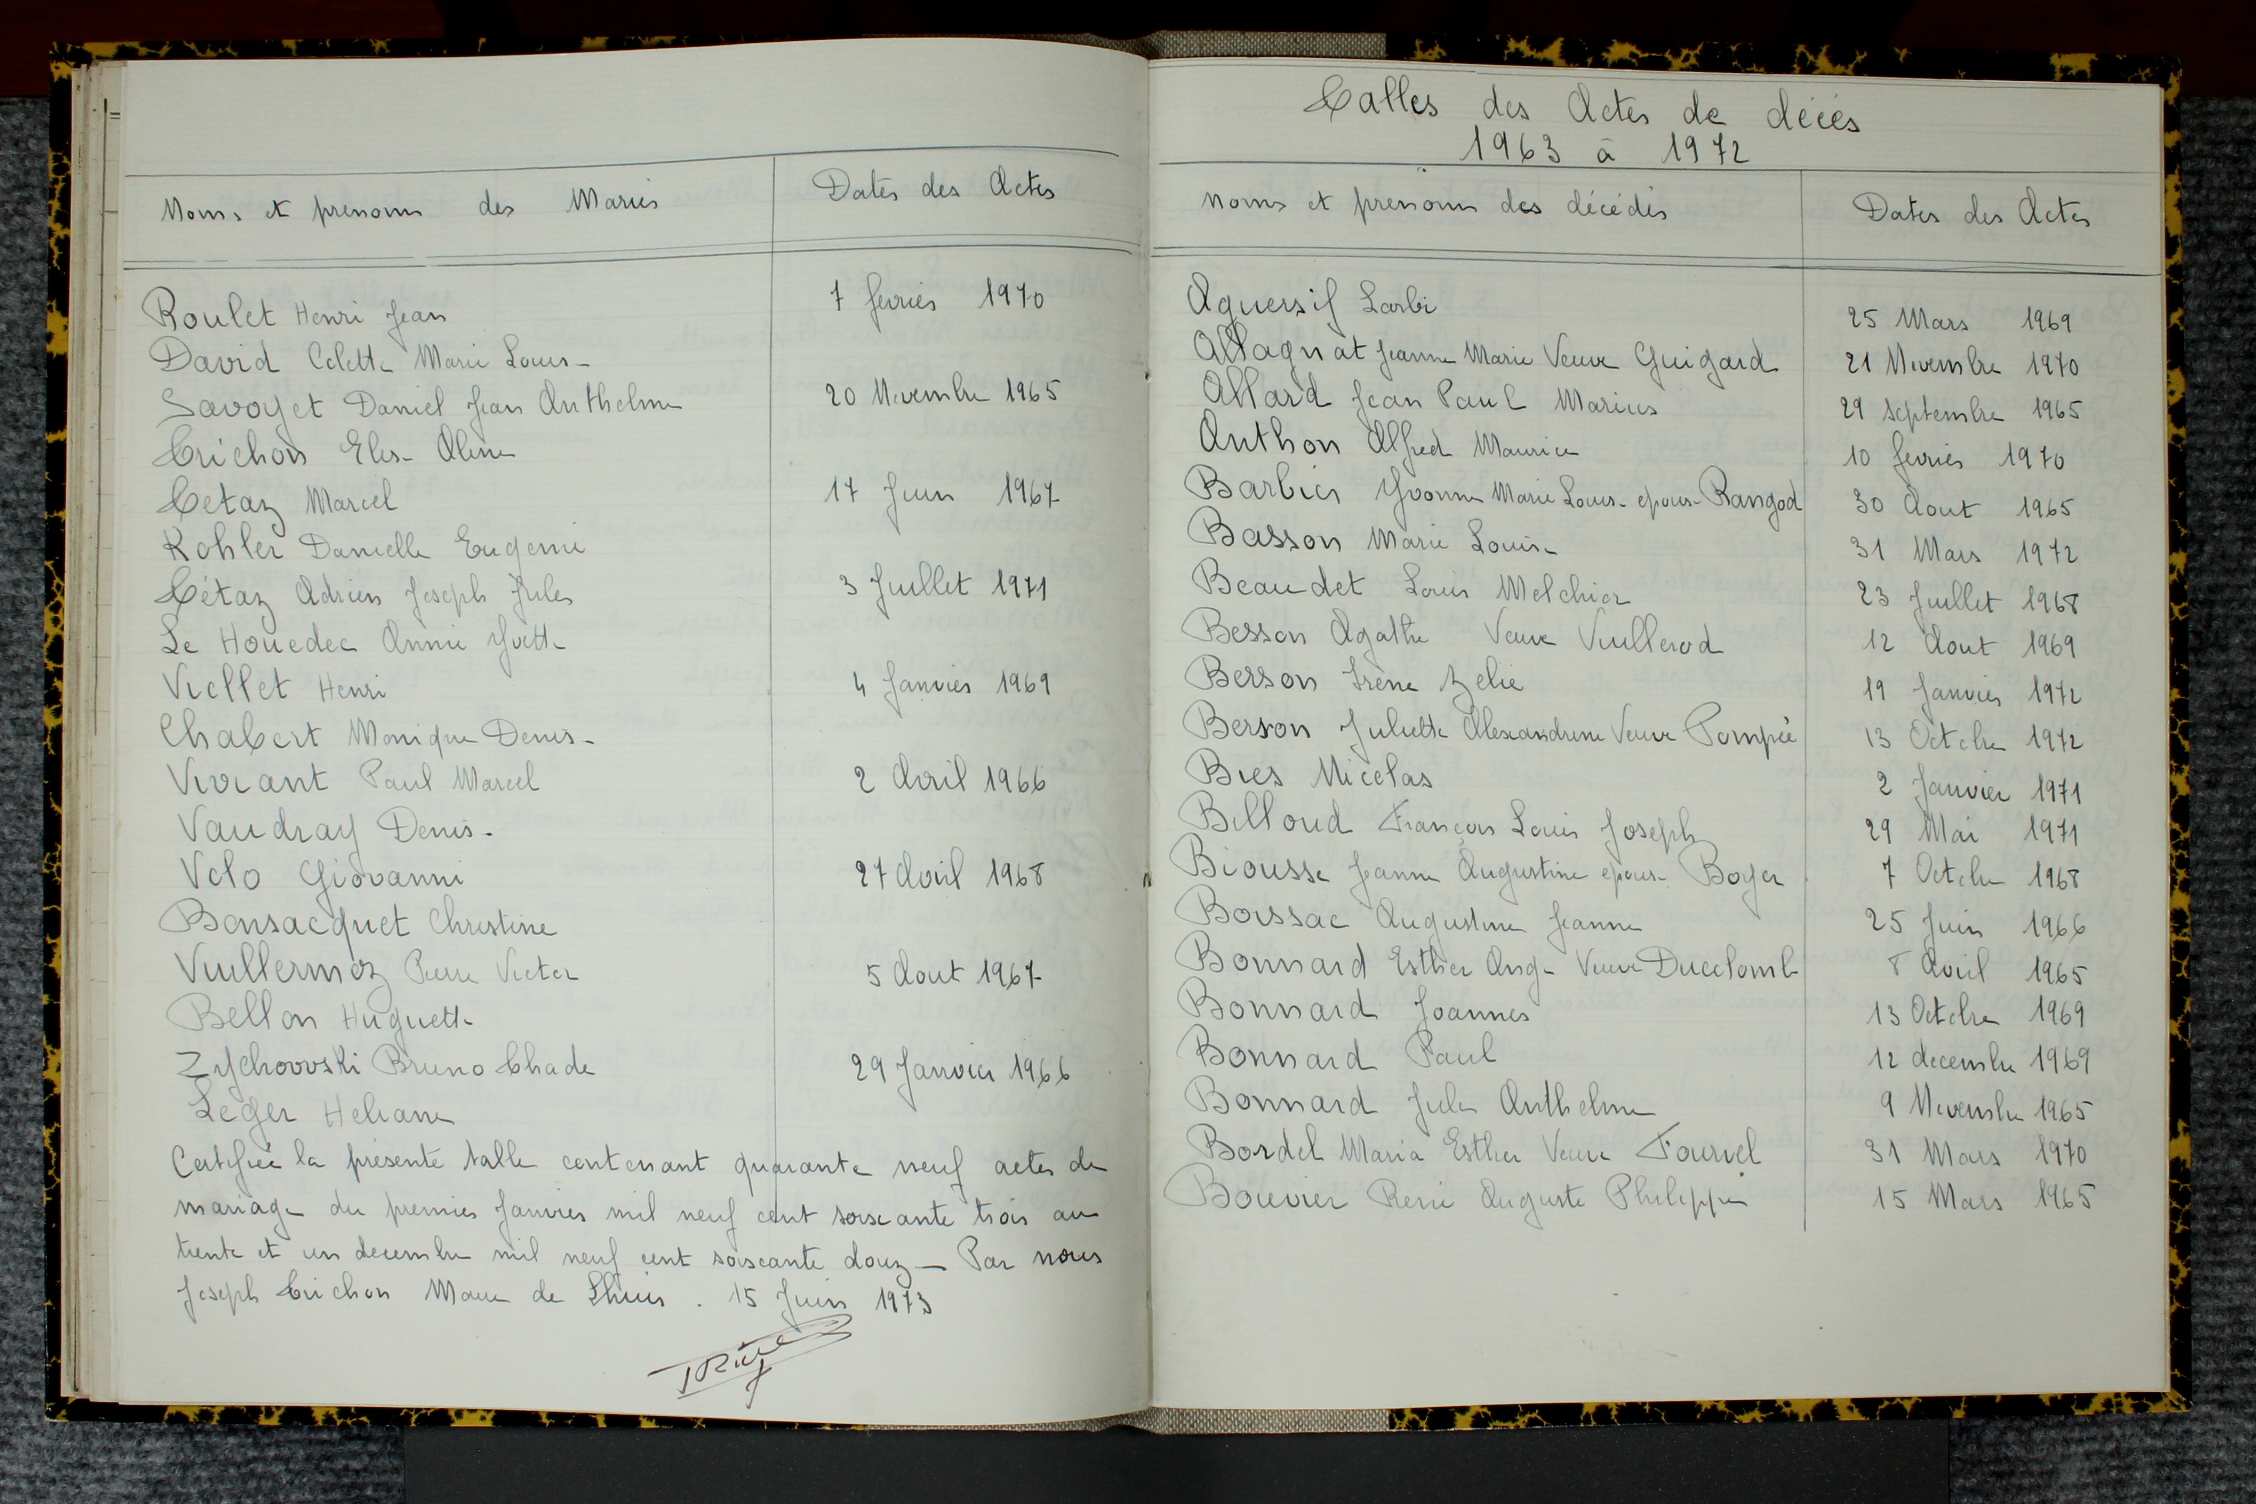 Noms et prenoms des Mariés
Dates des Actes
Roulet Henri Jean
7 fevrier 1970
David Colette Marie Louise
Savoyet Daniel Jean Anthelme
20 Novembre 1965
Trichon Elise Aline
Cetaz Marcel
17 Juin 1967
Kohler Danielle Eugenie
Cétaz Adrien Joseph Jules
3 Juillet 1971
Le Houedec Annie Yvette
Viollet Henri
4 Janvier 1969
Chabert Monique Denise
Viviant Paul Marcel
2 Avril 1966
Vaudray Denise
Velo Giovanni
27 Avril 1968
Bonsacquet Christine
Vuillermoz Pierre Victor
5 Aout 1967
Bellon Huguette
Zychowski Bruno
29 Janvier 1966
Leger Heliane
Certifiée la présente table contenant quarante neuf actes de
mariage du premier Janvier mil neuf cent soixante trois au
trente et un decembre mil neuf cent soixante douze - Par nous
Joseph Trichon Maire de Lhuis . 15 Juin 1973
Tables des Actes de décés
1963 à 1972
Noms et prenoms des décédés
Dates des Actes
Aguersif Larbi
25 Mars 1969
Allagnat Jeanne Marie Veuve Guigard
21 Novembre 1970
Allard Jean Paul Marius
29 septembre 1965
Anthon Alfred Maurice
10 fevrier 1970
Barbier Yvonne Marie Louise epouse Rangod
30 Aout 1965
Basson Marie Louise
31 Mars 1972
Beaudet Louis Melchior
23 Juillet 1968
Besson Agathe Veuve Vuillerod
12 Aout 1969
Berson Irène Zelie
19 Janvier 1972
Berson Juliette Alexandrine Veuve Pompée
13 Octobre 1972
Bies Nicolas
2 Janvier 1971
Billoud François Louis Joseph
29 Mai 1971
Biousse Jeanne Augustine epouse Boyer
7 Octobre 1968
Boissac Augustine Jeanne
25 Juin 1966
Bonnard Esther Ange Veuve Ducolomb
8 Avril 1965
Bonnard Joannes
13 Octobre 1969
Bonnard Paul
12 decembre 1969
Bonnard Jules Anthelme
9 Novembre 1965
Bordel Maria Esther Veuve Fournel
31 Mars 1970
Bouvier René Auguste Philippe
15 Mars 1965